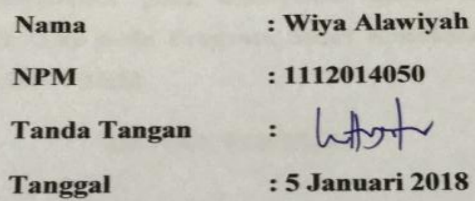 Nama : Wiya Alawiyah
NPM : 1112014050
Tanda Tangan :
Tanggal : 5 Januari 2018